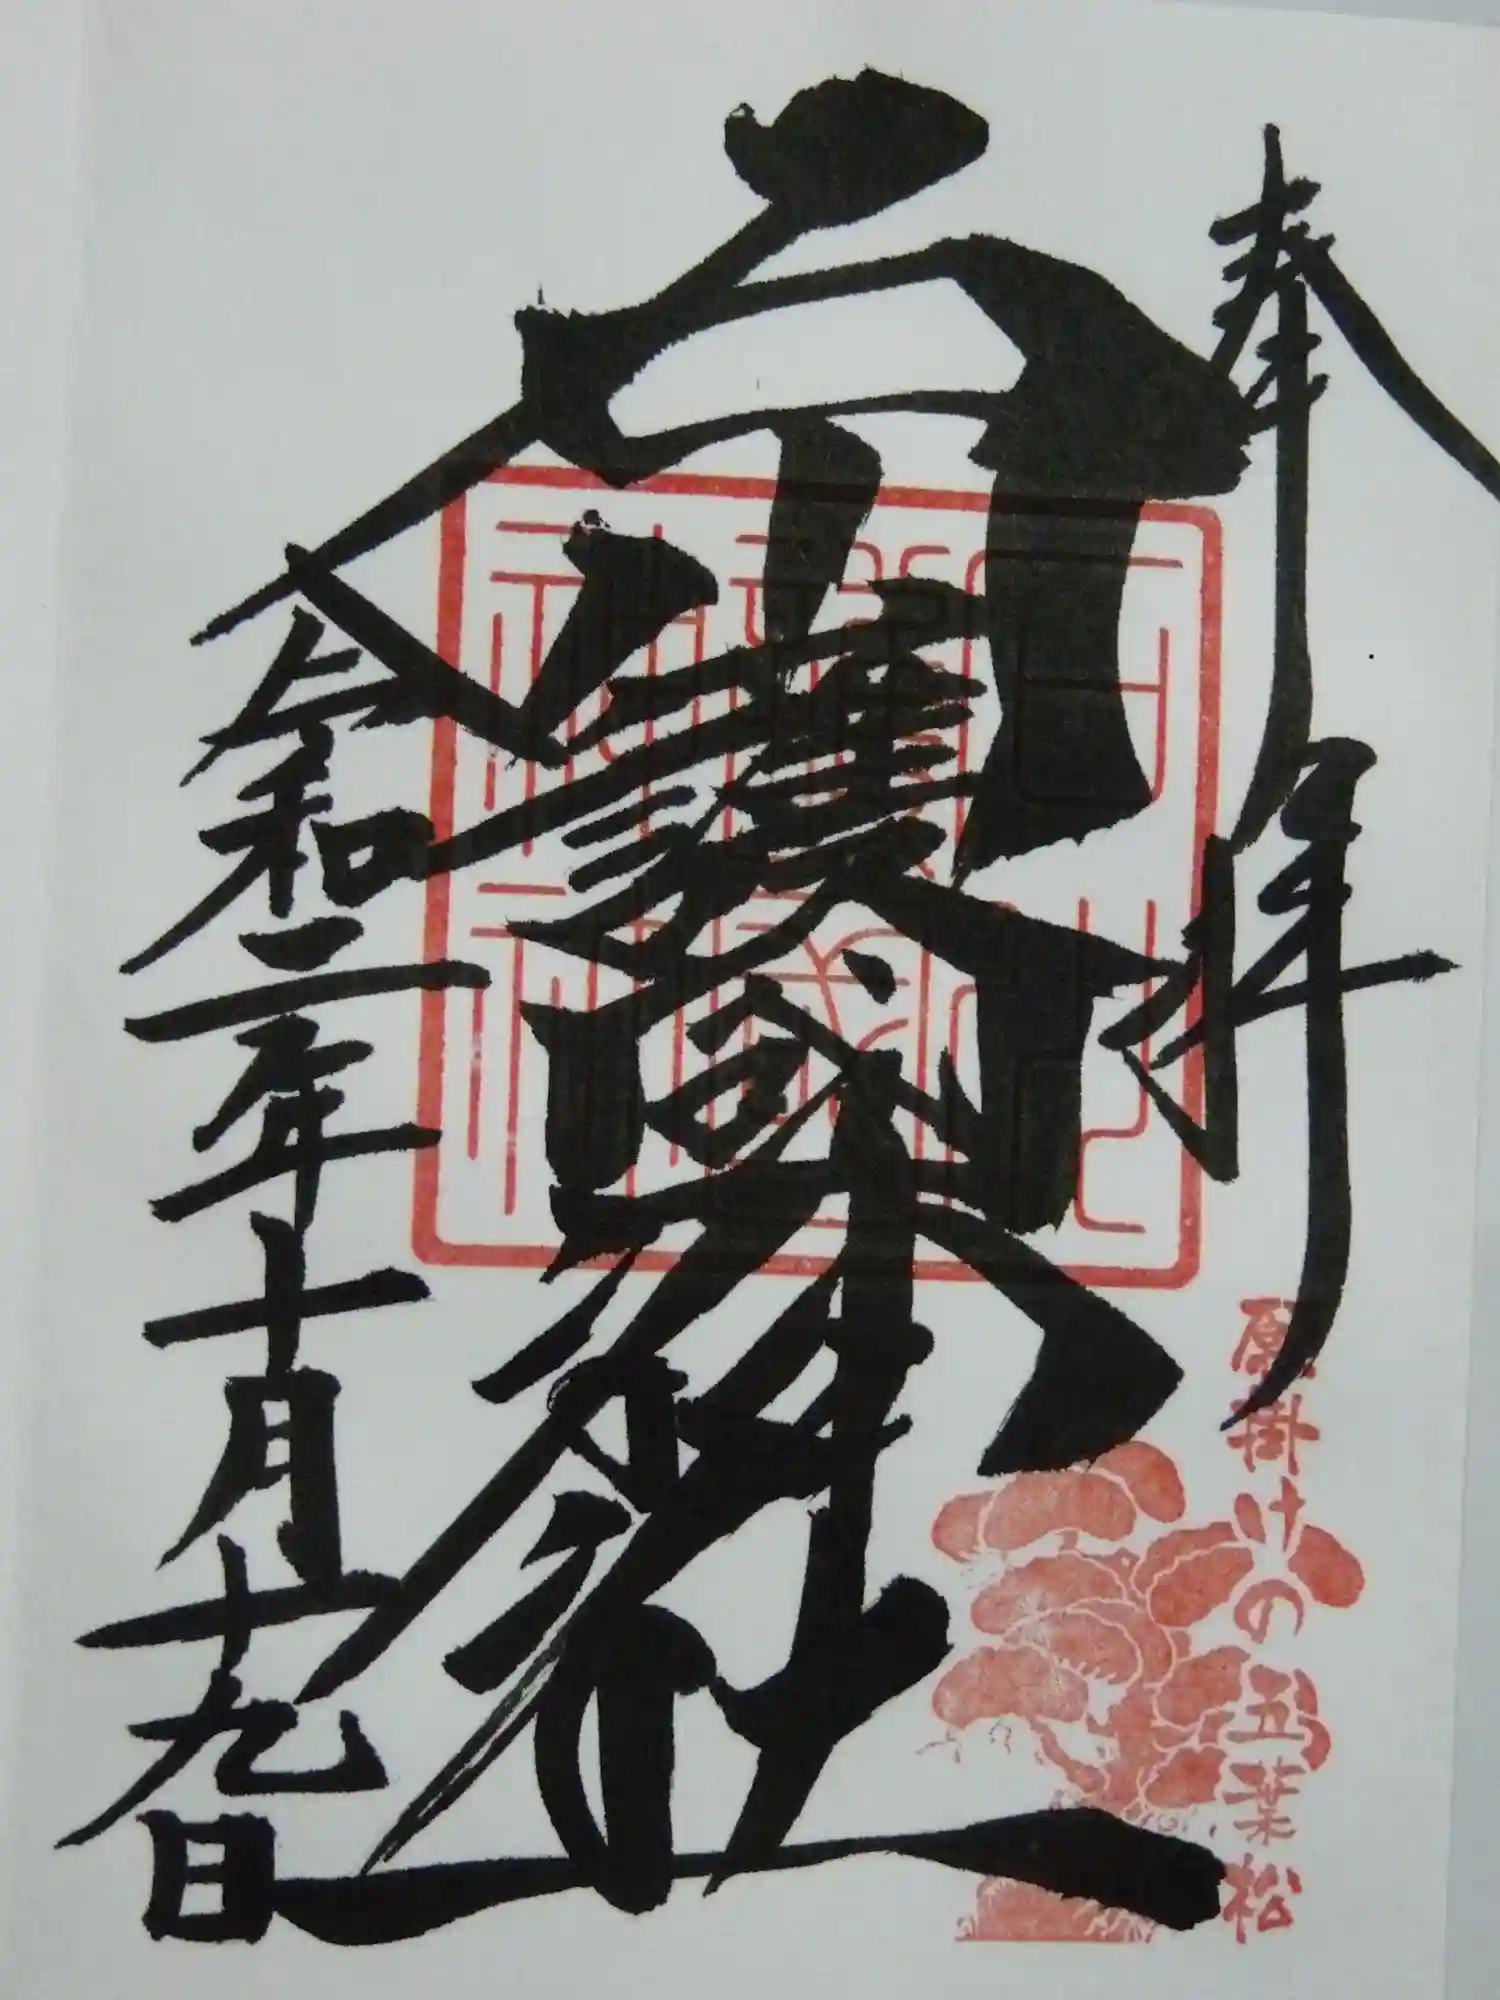 奉拝
護國神社
令和二年十月十九日
願掛けの五葉松